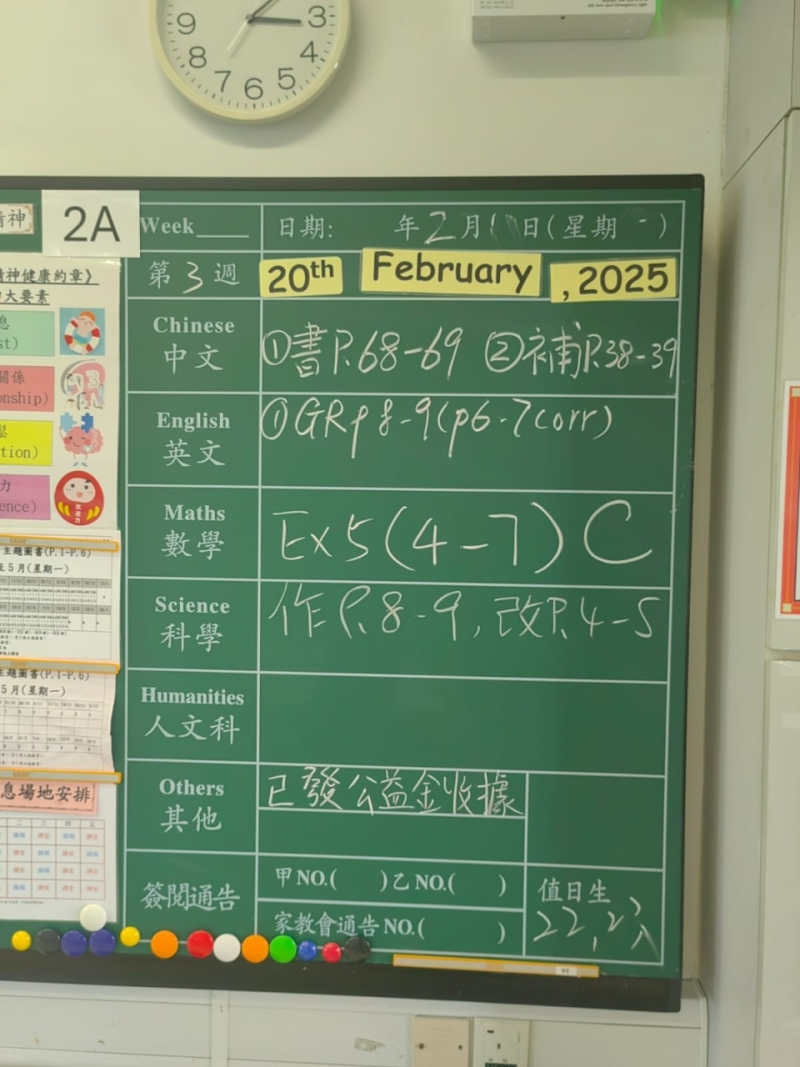 9 3
8 4
7 6 5
精神
2A
Week 日期: 年2月1 日(星期一)
第3週 20th February , 2025
精神健康約章》
大要素
st)
關係
onship)
tion)
力
ence)
Chinese 中文 ①書P.68-69 ②補P.38-39
English 英文 ①GRp8-9(p6-7corr)
Maths 數學 Ex5(4-7)C
Science 科學 作P.8-9,改P.4-5
Humanities 人文科
Others 其他 已發公益金收據
簽閱通告 甲NO.( ) 乙NO.( )
家教會通告NO.( )
值日生
22,
主題圖書(P.1-P.6)
至5月(星期一)
主題圖書(P.1-P.6)
5月(星期一)
息場地安排